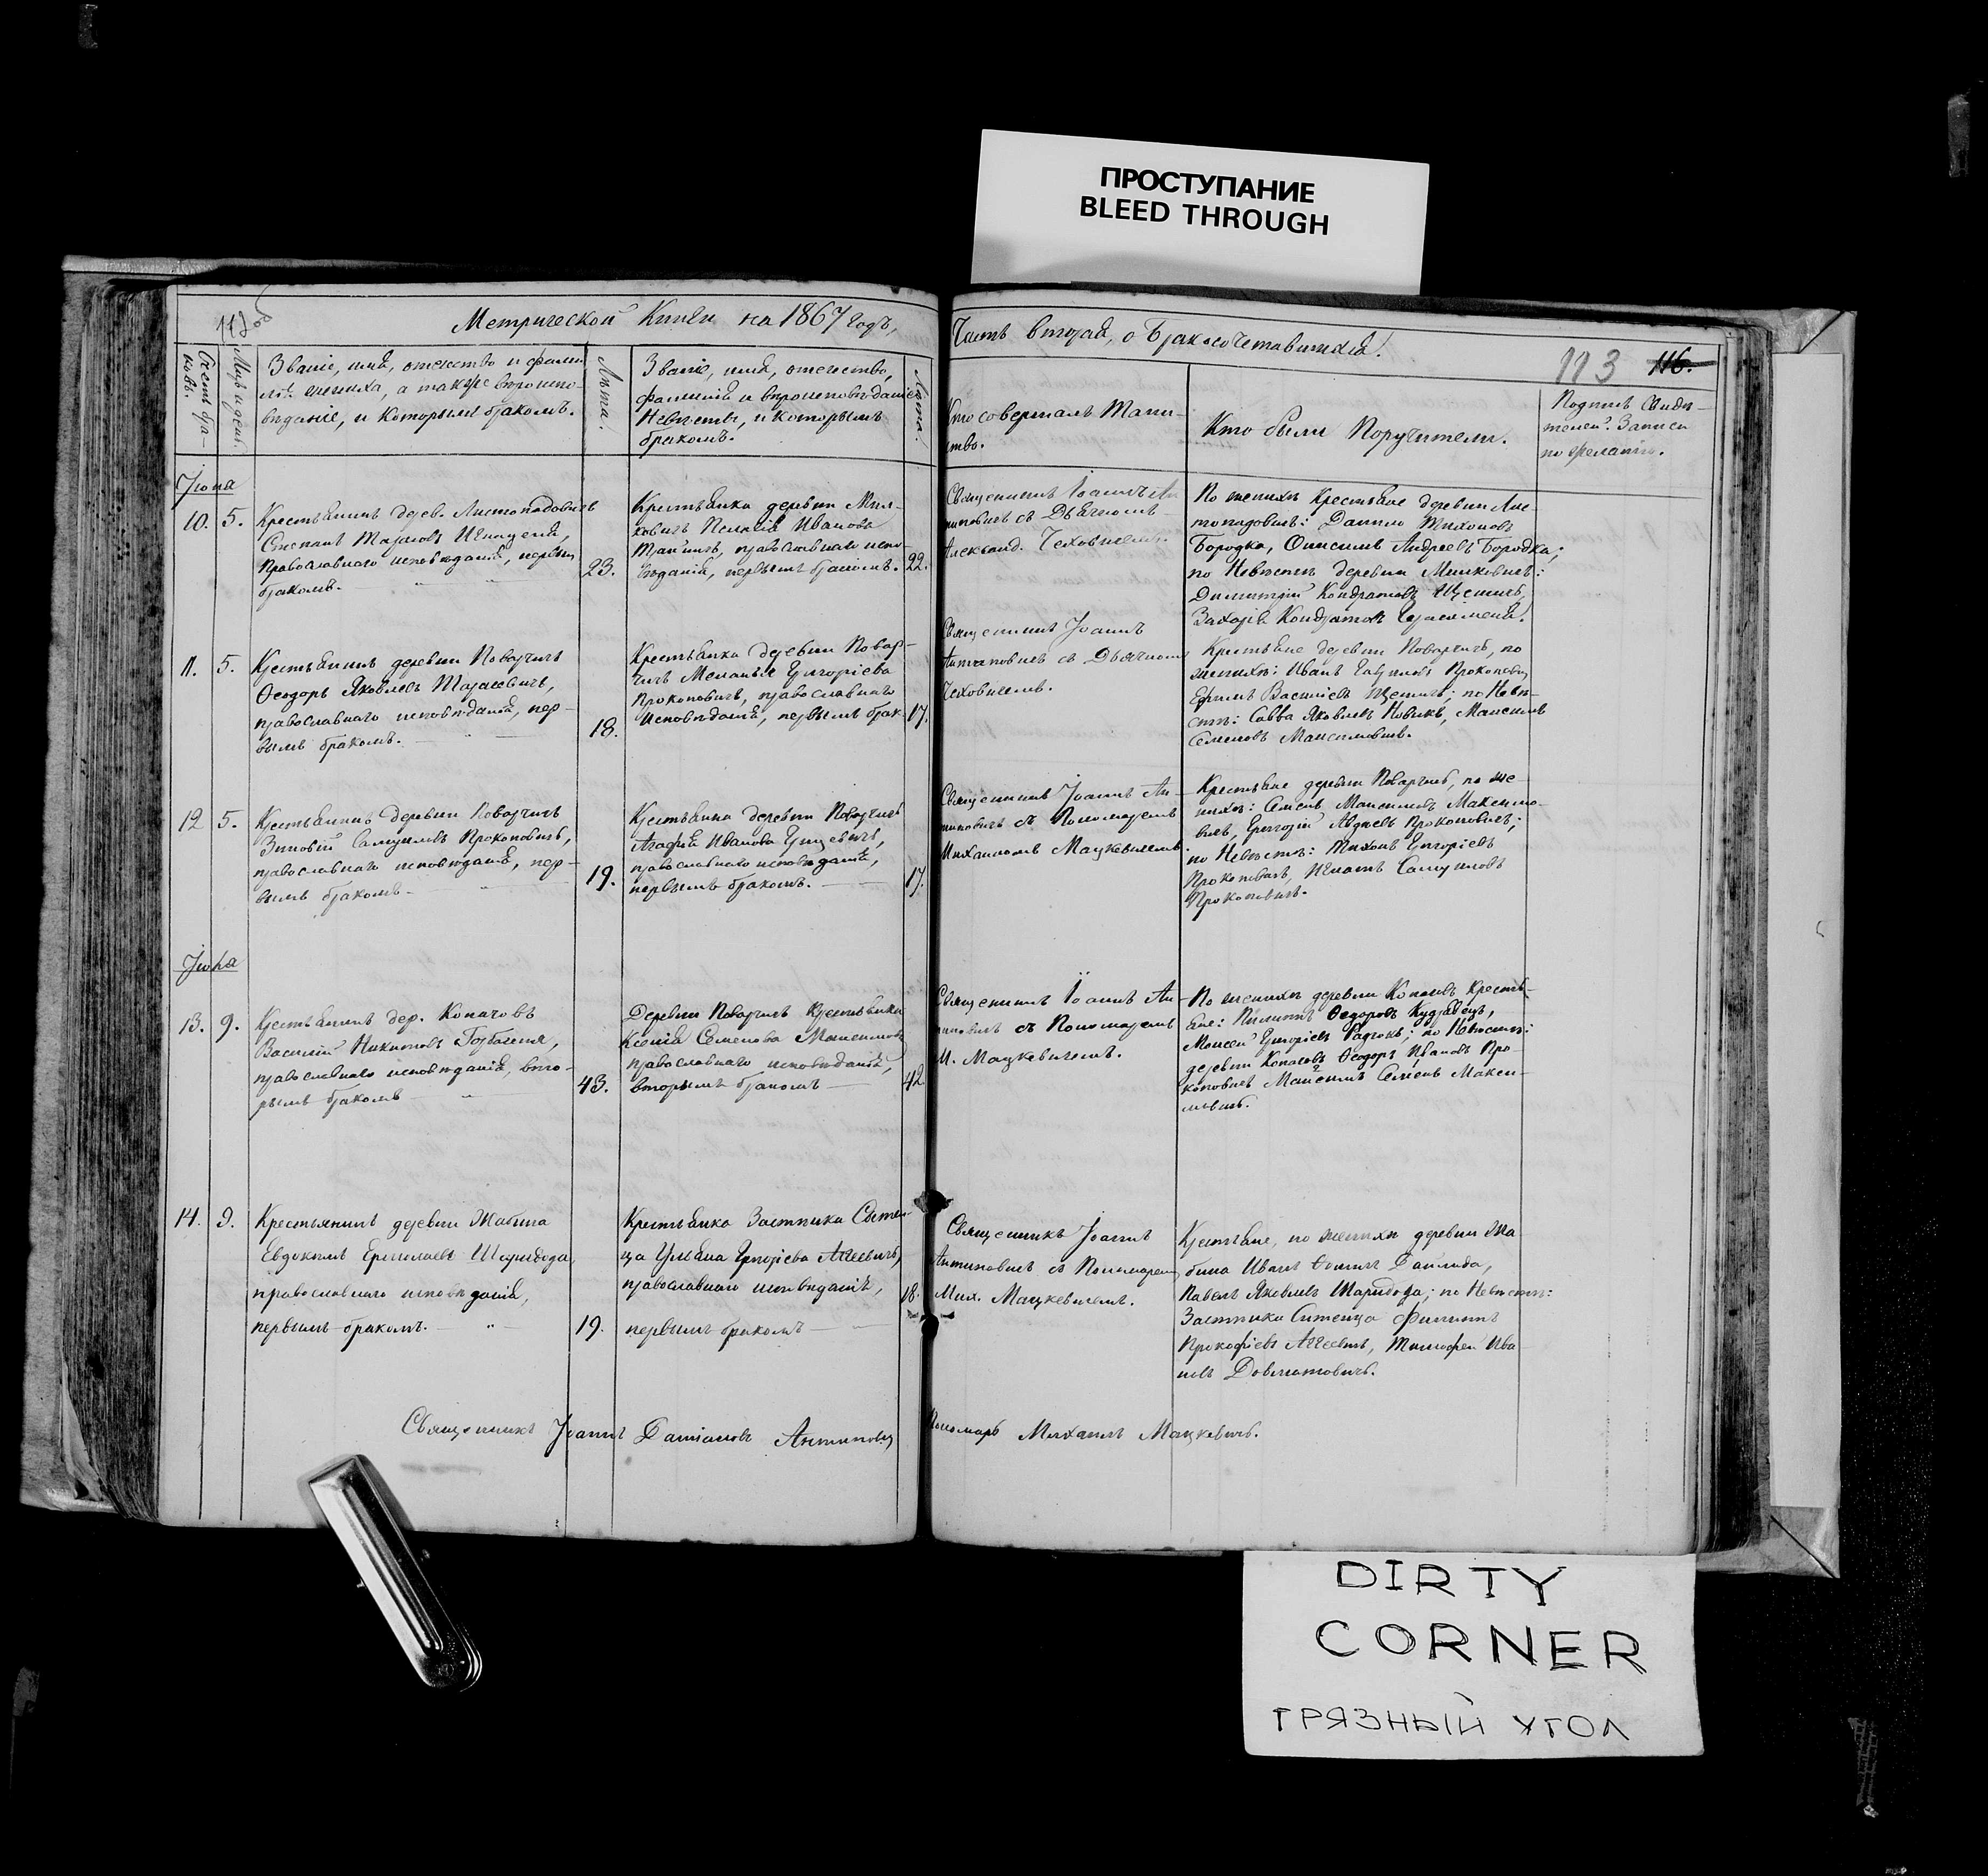 ПРОСТУПАНИЕ
BLEED THROUGH
112 об
Метрической Книги на 1867 годъ,
Часть вторая, о бракосочетавшихся.
113 116.
Мѣс. и день.
Званіе, имя, отечество и фами-
лія жениха, а также вѣроиспо-
вѣданіе, и которымъ бракомъ.
Лѣта.
Званіе, имя, отечество,
фамилія и вѣроисповѣданіе
Невѣсты, и которымъ
бракомъ.
Лѣта.
Кто совершалъ Таин-
ство.
Кто были Поручители.
Подпись Свидѣ-
телей Записи
по желанію.
Іюна
10. 5.
Крестьянинъ дерев. Листопадовичъ
Стефанъ
Православнаго исповѣданія, первымъ
бракомъ.
23.
Крестьянка деревни Миль-
ковичъ Пелагія Иванова
православнаго испо-
вѣданія, первымъ бракомъ.
22.
Священникъ Іоаннъ Ан
типовичъ съ Дьячкомъ
Александ. Чеховичемъ.
По женихѣ Крестьяне деревни Лис-
топадовичъ: Данило Тихоновъ
Бородка, Онисимъ Андреевъ Бородка;
по Невѣстѣ деревни Милковичъ:
Димитрій Кондратовъ
Захарія Кондратовъ
11. 5.
Крестьянинъ деревни Поварчичъ
Ѳеодоръ Яковлевъ Тарасевичъ,
православнаго исповѣданія, пер-
вымъ бракомъ.
18.
Крестьянка деревни Повар-
чичъ Меланія Григоріева
Прокоповичъ, православнаго
исповѣданія, первымъ брак.
17.
Священникъ Іоаннъ
Антиповичъ съ Дьячкомъ
Чеховичемъ.
Крестьяне деревни Поварчичъ, по
женихѣ: Иванъ Прокоповичъ
Ефимъ Васильевъ по Невѣ-
стѣ: Савва Яковлевъ Новикъ, Максимъ
Семеновъ Максимовичъ.
12 5.
Крестьянинъ деревни Поварчичъ
Зиновій Самуиловъ Прокоповичъ,
православнаго исповѣданія, пер-
вымъ бракомъ.
19.
Крестьянка деревни Поварчичъ
Агафія Иванова Грицевичъ,
православнаго исповѣданія,
первымъ бракомъ.
17.
Священникъ Іоаннъ Ан-
типовичъ съ Пономаремъ
Михаиломъ Мацкевичемъ.
Крестьяне деревни Поварчичъ, по же-
нихѣ: Семенъ Максимовъ Максимо-
вичъ, Григорій Авдѣевъ Прокоповичъ;
по Невѣстѣ: Тихонъ Григоріевъ
Прокоповичъ, Игнатъ Самуиловъ
Прокоповичъ.
Іюна
13. 9.
Крестьянинъ дер. Копачовъ
Василій Никитовъ Горбаченя,
православнаго исповѣданія, вто-
рымъ бракомъ
43.
Деревни Поварчичъ Крестьянка
Ксенія Семенова Максимовъ
православнаго исповѣданія,
вторымъ бракомъ
42
Священникъ Іоаннъ Ан-
типовичъ съ Пономаремъ
М. Мацкевичемъ.
По женихѣ деревни Копачовъ Крестья-
не: Пилипъ Ѳедоровъ Кудравецъ,
Моисей Григоріевъ Радюкъ; по Невѣстѣ:
деревни Копачовъ Ѳеодоръ Ивановъ Про-
коповичъ Максимъ Семеновъ Макси-
мовичъ.
14. 9.
Крестьянинъ деревни Жабина
Евдокимъ Ермолаевъ Шарибода,
православнаго исповѣданія,
первымъ бракомъ.
19.
Крестьянка Застѣнка Сытен-
ца Ульяна Григоріева Агіевичъ,
православнаго исповѣданія,
первымъ бракомъ
18.
Священникъ Іоаннъ
Антиповичъ съ Пономаремъ
Мих. Мацкевичемъ.
Крестьяне, по женихѣ деревни Жа
бина Иванъ Ѳоминъ Данилода,
Павелъ Яковлевъ Шарибода; по Невѣстѣ:
Застѣнка Ситенца Филиппъ
Прокофіевъ Агіевичъ, Тимофей Ива
новъ Довнатовичъ.
Священникъ Іоаннъ Даміановъ Антиповичъ
Пономарь Михаилъ Мацкевичъ.
DIRTY
CORNER
ГРЯЗНЫЙ УГОЛ